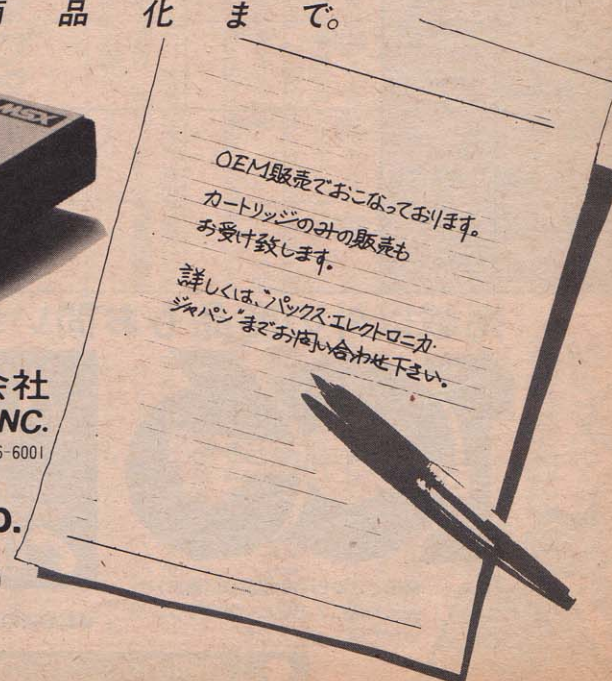 品 化 ま で。
MSX
OEM販売でおこなっております。
カートリッジのみの販売も
お受け致します。
詳しくは、“パックス・エレクトロニカ・
ジャパン”までお問い合わせ下さい。
会社
INC.
5-6001
D.